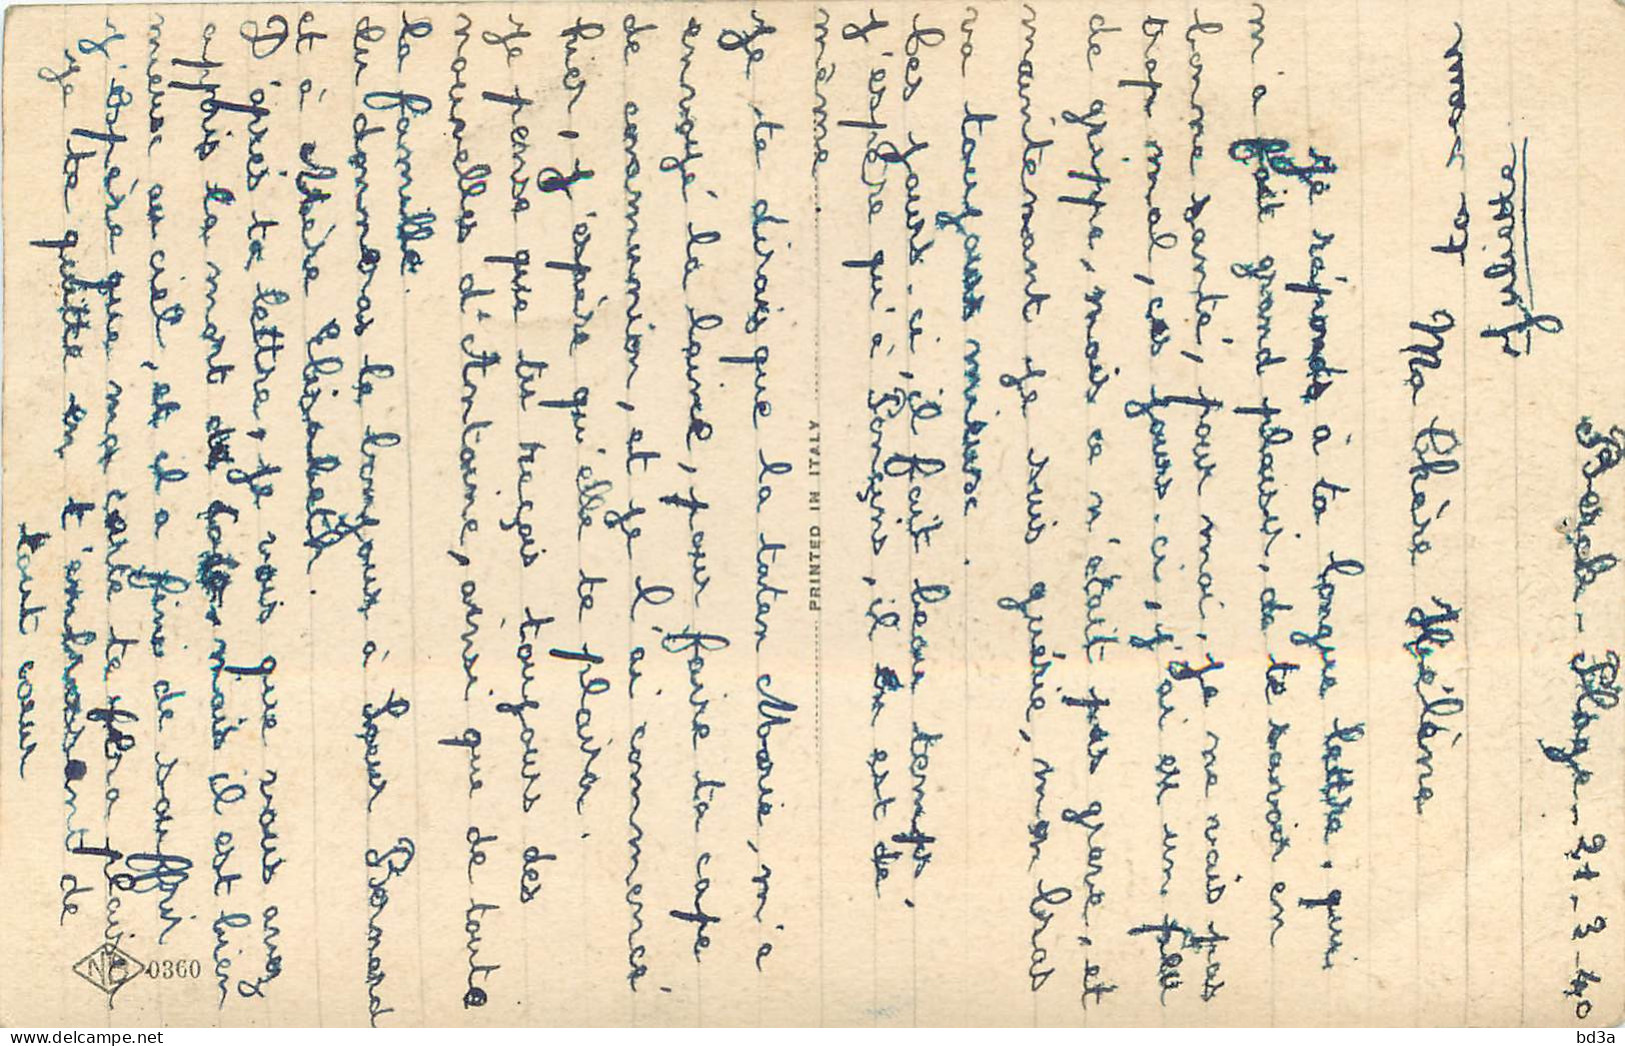 Berck-Plage - 21-3-40
Ma Chère Hélène
Je réponds à ta longue lettre, qui
m'a fait grand plaisir, de te savoir en
bonne santé, pour moi, je ne vais pas
trop mal, ces jours-ci, j'ai eu un peu
de grippe, mais ce n'était pas grave, et
maintenant je suis guérie, mon bras
va toujours mieux.
Ces jours-ci, il fait beau temps,
j'espère qu'à Ponçins, il en est de
même.
Je te dirais que la tatan Marie, m'a
envoyé la laine, pour faire ta cape
de communion, et je l'ai commencé
hier, j'espère qu'elle te plaira.
Je pense que tu reçois toujours des
nouvelles d'Antoine, ainsi que de toute
la famille.
Tu donneras le bonjour à Soeur Bernard
et à Mère Elisabeth.
D'après ta lettre, je vois que vous avez
appris la mort de mais il est bien
mieux au ciel, et il a fini de souffrir
J'espère que ma carte te fera plaisir
Je te quitte en t'embrassant de
tout coeur
PRINTED IN ITALY
0360
bd3a